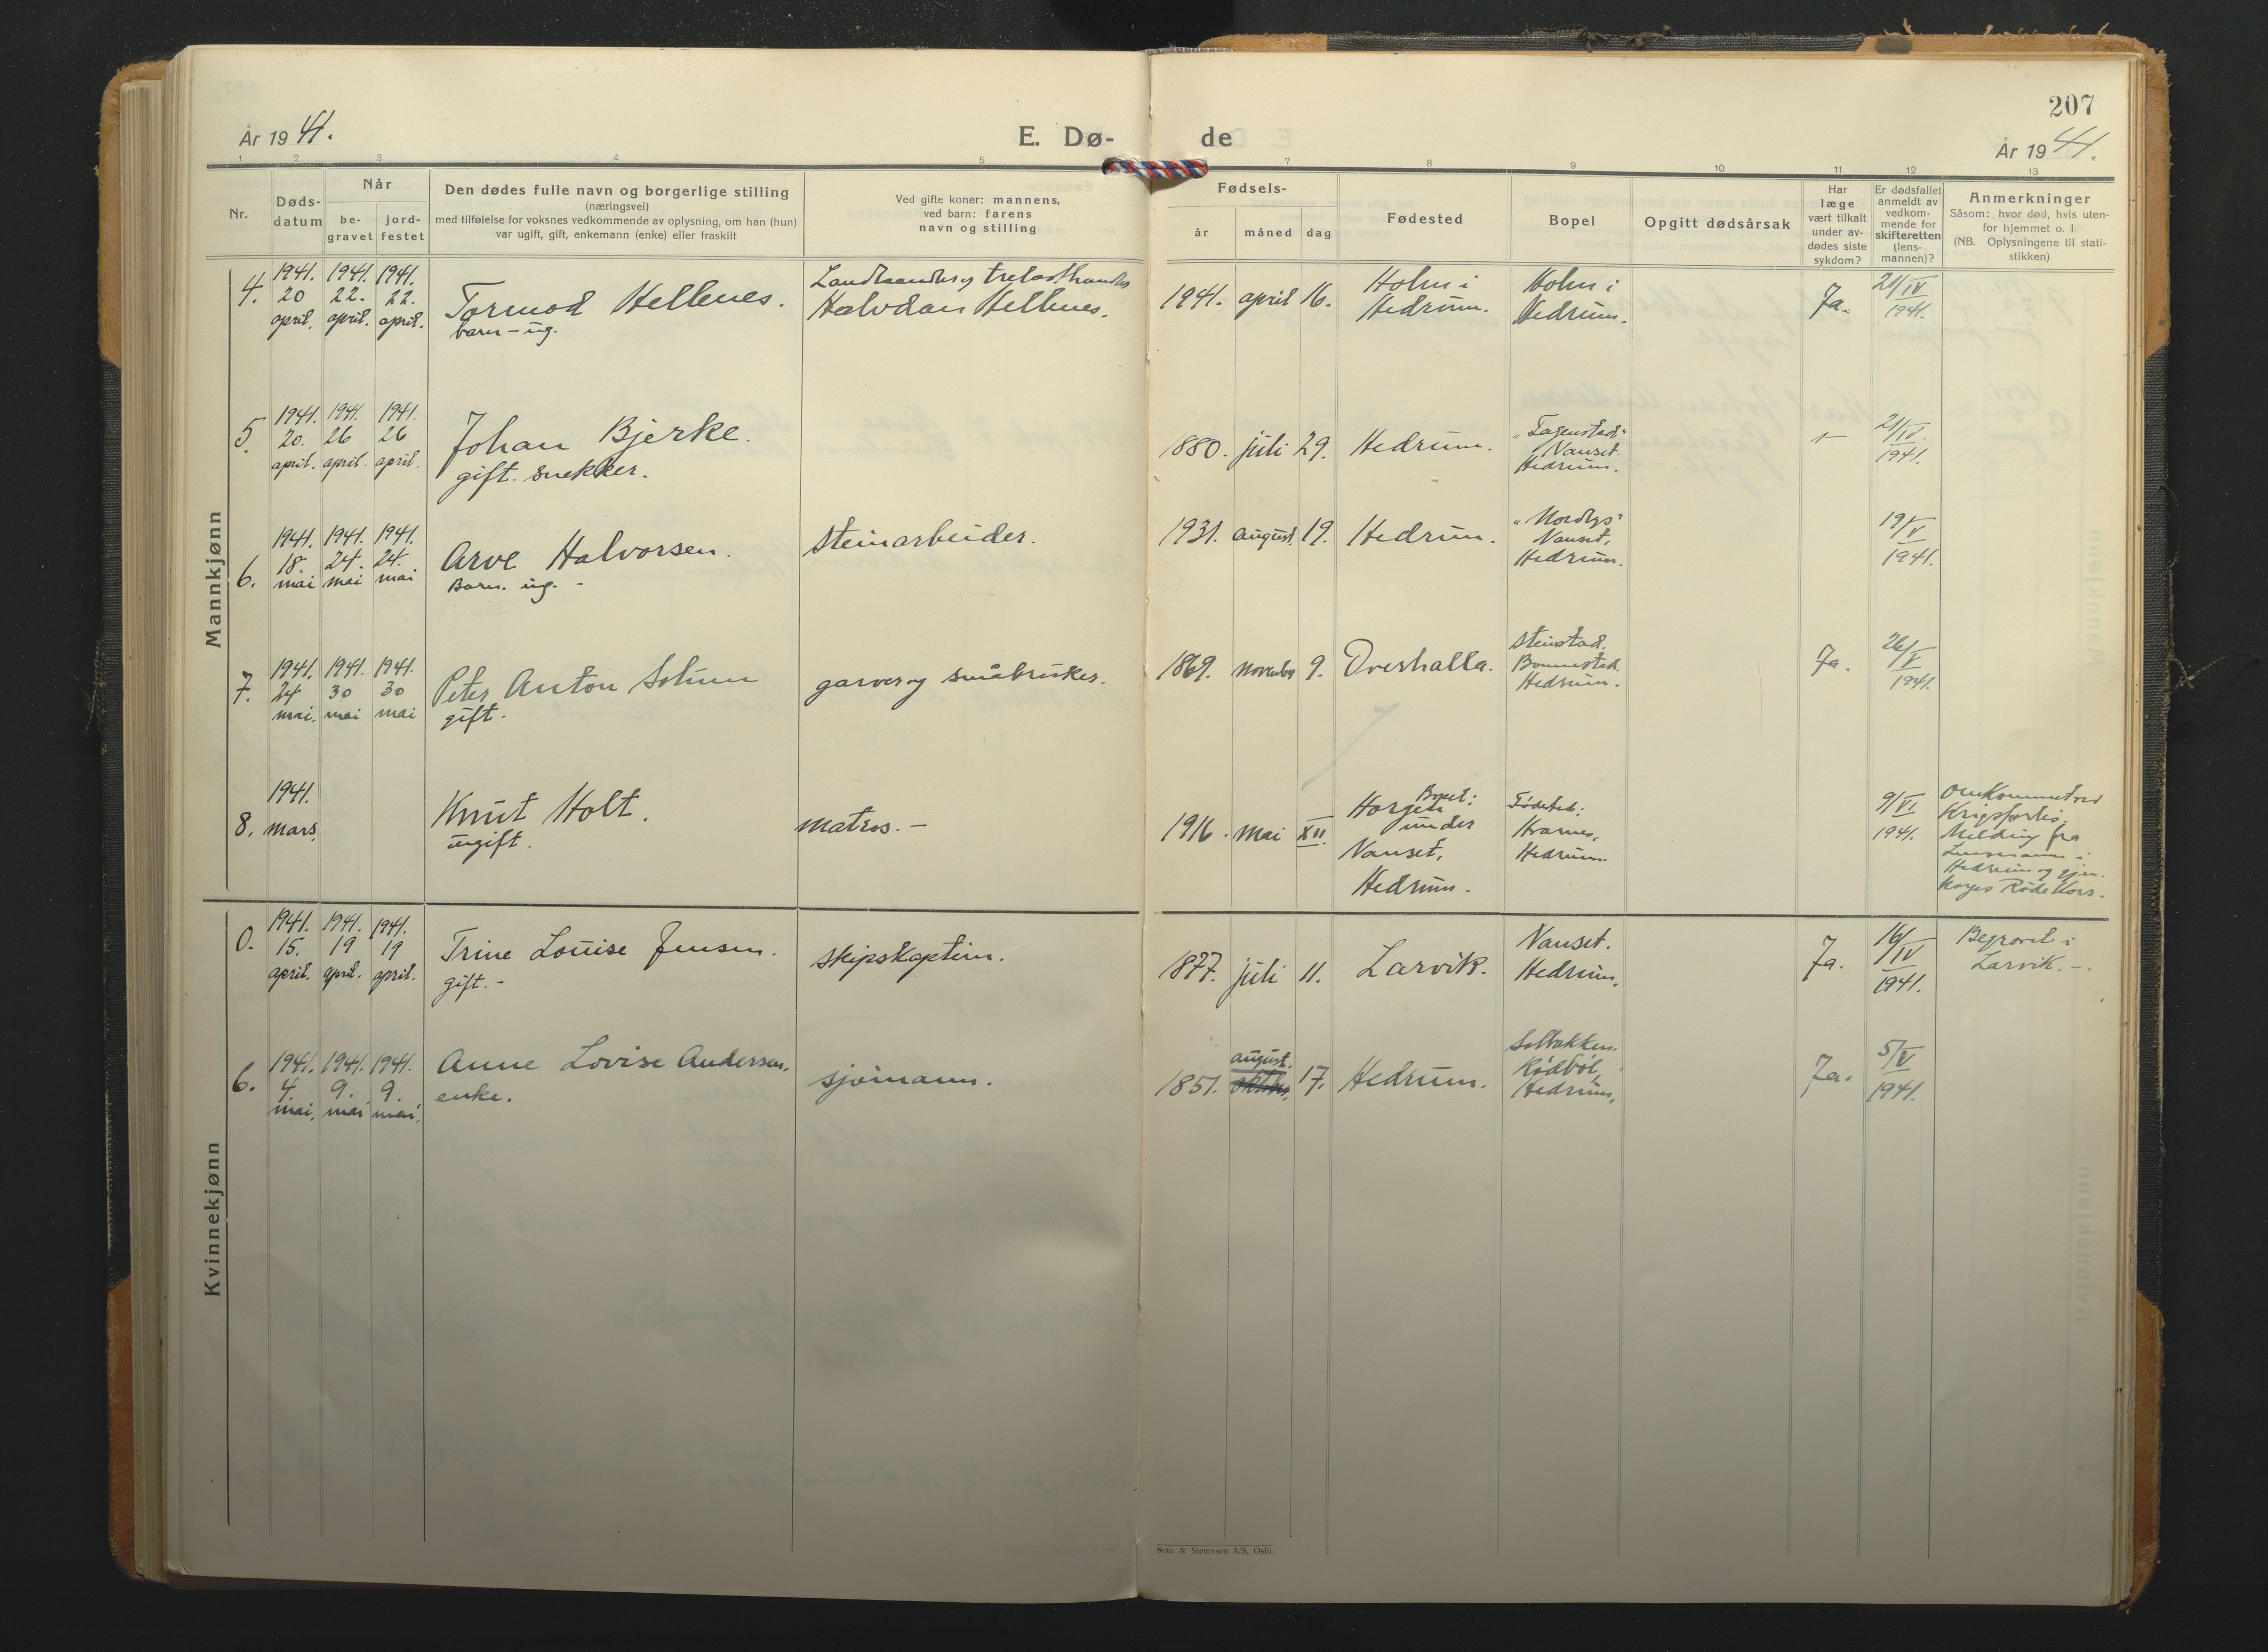 207
År 1941.
E. Dø- de
År 1941.
1 2 3 4 5 7 8 9 10 11 12 13
Nr.
Døds-
datum
Når
be-
gravet
jord-
festet
Den dødes fulle navn og borgerlige stilling
(næringsvei)
med tilføielse for voksnes vedkommende av oplysning, om han (hun)
var ugift, gift, enkemann (enke) eller fraskilt
Ved gifte koner: mannens,
ved barn: farens
navn og stilling
Fødsels-
år måned dag
Fødested
Bopel
Opgitt dødsårsak
Har
læge
vært tilkalt
under av-
dødes siste
sykdom?
Er dødsfallet
anmeldt av
vedkom-
mende for
skifteretten
(lens-
mannen)?
Anmerkninger
Såsom: hvor død, hvis uten-
for hjemmet o. l.
(NB. Oplysningene til stati-
stikken)
Mannkjønn
4.
1941.
20
april.
1941.
22.
april.
1941.
22.
april.
Tormod Hellenes.
barn - ug.
Landhandler og trelasthandler
Halvdan Hellenes.
1941. april 16.
Holm i
Hedrum.
Holm i
Hedrum.
Ja.
21/IV
1941.
5.
1941.
20.
april.
1941.
26
april.
1941.
26
april.
Johan Bjerke.
gift. snekker.
1880. juli 29.
Hedrum.
"Fagerstad"
Nanset
Hedrum.
21/IV.
1941.
6.
1941.
18.
mai
1941.
24.
mai
1941.
24.
mai
Arve Halvorsen.
Barn. ug. -
steinarbeider.
1931. august. 19.
Hedrum.
"Nordlys"
Nanset,
Hedrum.
19/V
1941.
7.
1941.
24
mai.
1941.
30
mai
1941.
30
mai
Peter Anton Solum
gift.
garver og småbruker.
1869. november 9.
Overhalla.
Steinstad.
Bommestad
Hedrum.
Ja.
26/V
1941.
8.
1941.
mars.
Knut Holt.
ugift.
matros. -
1916. mai XII.
Bopel:
under
Nanset,
Hedrum.
Fødested:
Kvarnes,
Hedrum.
9/VI
1941.
Omkommet ved
Krigsforlis.
Melding fra
Lensmannen i
Hedrum og gjen.
Norges Røde Kors.
Kvinnekjønn
0.
1941.
15.
april.
1941.
19
april.
1941.
19
april.
Trine Louise Jensen.
gift. -
skipskaptein.
1877. juli 11.
Larvik.
Nanset.
Hedrum.
Ja.
16/IV
1941.
Begravet i
Larvik. -
6.
1941.
4
mai,
1941.
9.
mai
1941.
9.
mai,
Anne Lovise Andersen.
enke.
sjømann.
august.
1851. oktober, 17.
Hedrum.
Solbakken.
Rødbøl,
Hedrum.
Ja.
5/V
1941.
Sem & Stenersen A/S, Oslo.